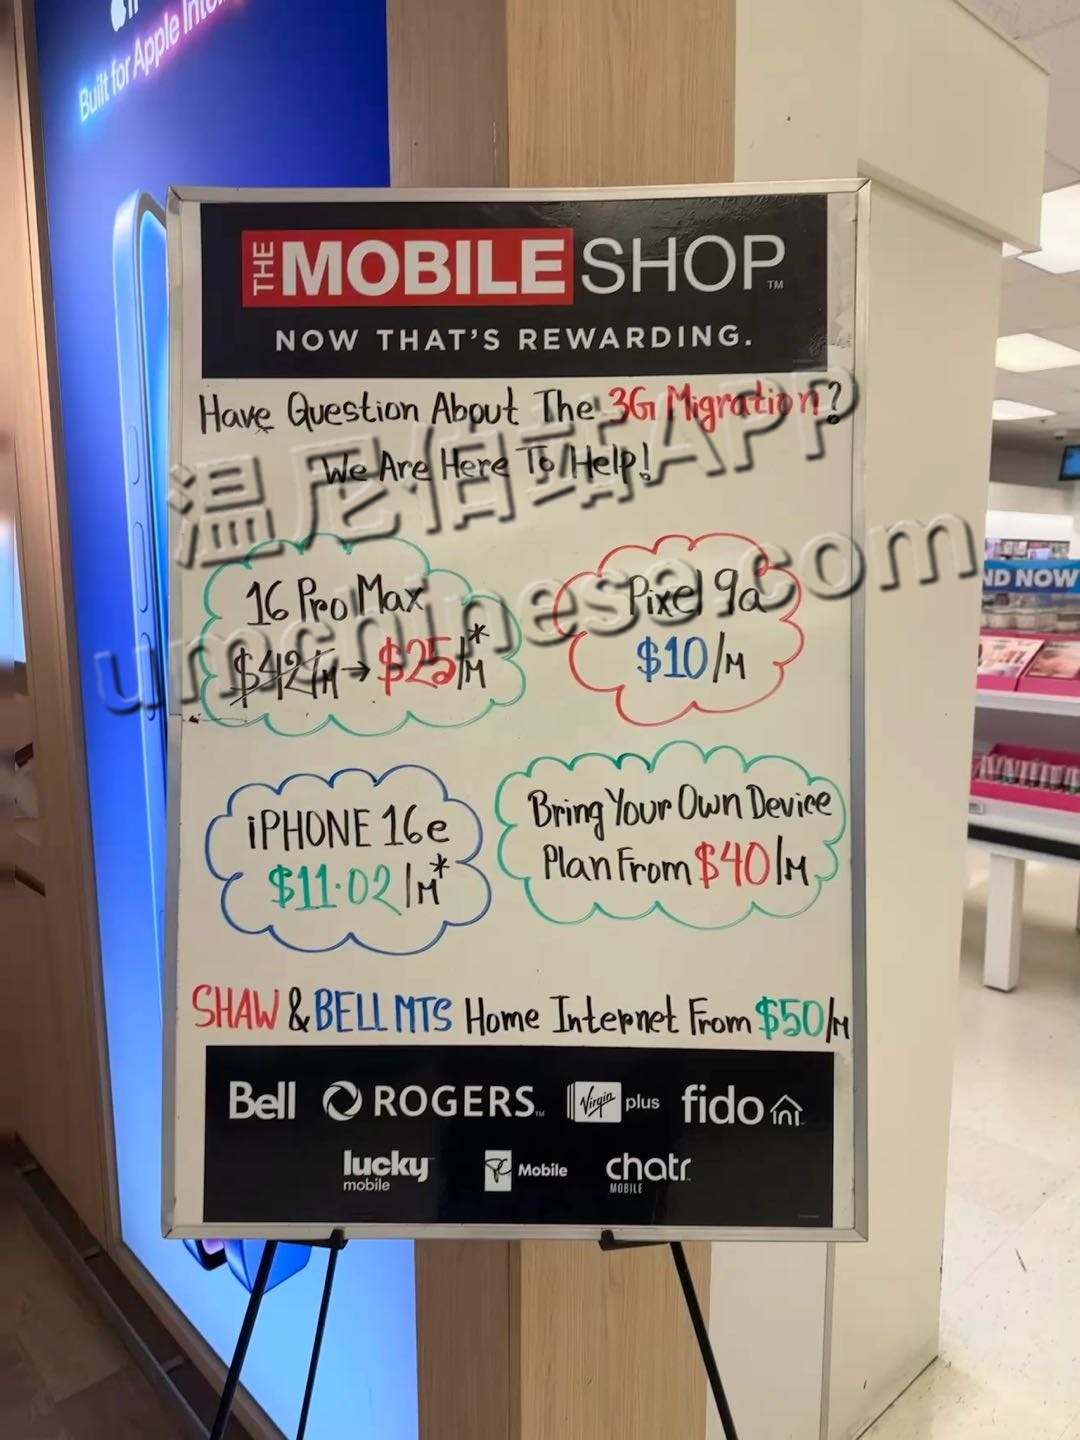 Built for Apple Intel
THE MOBILE SHOP™
NOW THAT'S REWARDING.
Have Question About The 3G Migration?
We Are Here To Help!
温尼伯站APP
umchinese.com
16 Pro Max
$42/M → $25/M*
Pixel 9a
$10/M
iPHONE 16e
$11.02/M*
Bring Your Own Device
Plan From $40/M
SHAW & BELL MTS Home Internet From $50/M
Bell ROGERS™ Virgin plus fido
lucky mobile PC Mobile chatr MOBILE
ND NOW